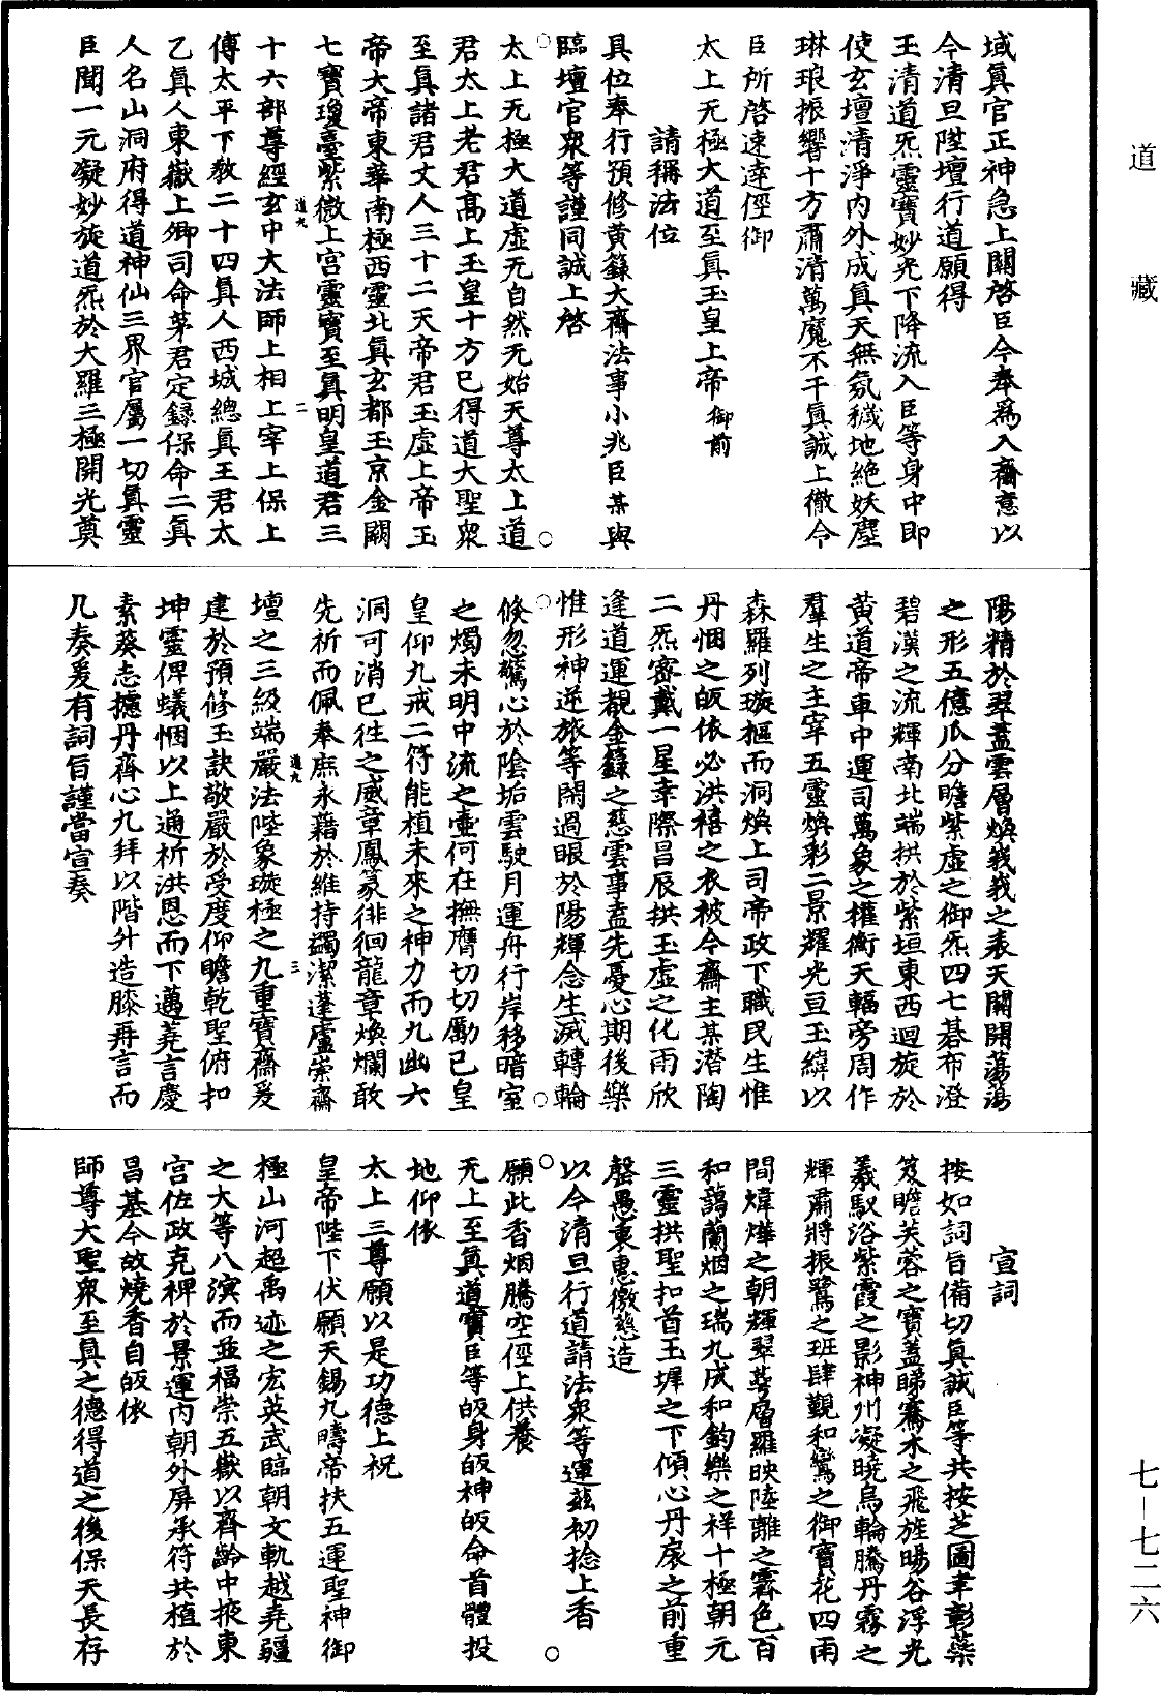 道藏
域眞官正神急上關啓臣今奉爲入齋意以
今清旦陞壇行道願得
王清道炁靈寶妙光下降流入臣等身中即
使玄壇清淨內外成眞天無氛穢地絕妖塵
琳琅振響十方肅清萬魔不干眞誠上徹今
臣所啓速達徑御
太上无極大道至眞玉皇上帝御前
請稱法位
具位奉行預修黄籙大齋法事小兆臣某與
臨壇官衆等謹同誠上啓
太上无極大道虛无自然无始天尊太上道
君太上老君高上玉皇十方已得道大聖衆
至眞諸君丈人三十二天帝君玉虛上帝玉
帝大帝東華南極西靈北眞玄都玉京金闕
七寶瓊臺紫微上宮靈寶至眞明皇道君三
道九 二
十六部尊經玄中大法師上相上宰上保上
傅太平下教二十四眞人西城總眞王君太
乙眞人東嶽上卿司命茅君定録保命二眞
人名山洞府得道神仙三界官屬一切眞靈
臣聞一元凝妙旋道炁於大羅三極開光奠
陽精於翠蓋雲層煥莪莪之表天關開蕩蕩
之形五億瓜分瞻紫虛之御炁四七碁布澄
碧漢之流輝南北端拱於紫垣東西迴旋於
黄道帝車中運司萬象之權衡天輻旁周作
羣生之主宰五靈煥彩二景耀光亘玉緯以
森羅列璇樞而洞煥上司帝政下職民生惟
丹悃之皈依必洪禧之衣被今齋主某潛陶
二炁密戴一星幸際昌辰拱玉虛之化雨欣
逢道運覩金籙之慈雲事盍先憂心期後樂
惟形神逆旅等閑過眼於陽輝念生滅轉輪
倐忽驚心於陰垢雲駛月運舟行岸移暗室
之燭未明中流之壷何在撫膺切切勵已皇
皇仰九戒二符能植未來之神力而九幽六
洞可消已徃之愆章鳳篆徘徊龍章煥爛敢
先祈而佩奉庶永藉於維持蠲潔蓬廬崇齋
道九 三
壇之三級端嚴法陛象璇極之九重寶齋爰
建於預修玉訣敬嚴於受度仰瞻乾聖俯扣
坤靈俾蟻悃以上通析洪恩而下邁蕘言慶
素葵志攄丹齊心九拜以階升造膝再言而
几奏爰有詞旨謹當宣奏
宣詞
按如詞旨備切眞誠臣等共按芝圖聿彰蘂
笈瞻芙蓉之寶蓋睇騫木之飛旌暘谷浮光
羲馭浴紫霞之影神州凝曉烏輪騰丹霧之
輝肅將振鷺之班肆覲和鸞之御寶花四雨
間煒燁之朝輝翠蕚層羅映陸離之霽色百
和藹蘭烟之瑞九成和鈞樂之祥十極朝元
三靈拱聖扣首玉墀之下傾心丹扆之前重
罄愚衷惠徼慈造
以今清旦行道請法衆等運兹初捻上香
願此香烟騰空徑上供養
无上至眞道寶臣等皈身皈神皈命首體投
地仰依
太上三尊願以是功德上祝
皇帝陛下伏願天錫九疇帝扶五運聖神御
極山河超禹迹之宏英武臨朝文軌越堯疆
之大等八溟而並福崇五嶽以齊齡中掖東
宮佐政克裨於景運內朝外屏承符共植於
昌基今故燒香自皈依
師尊大聖衆至眞之德得道之後保天長存
七—七二六